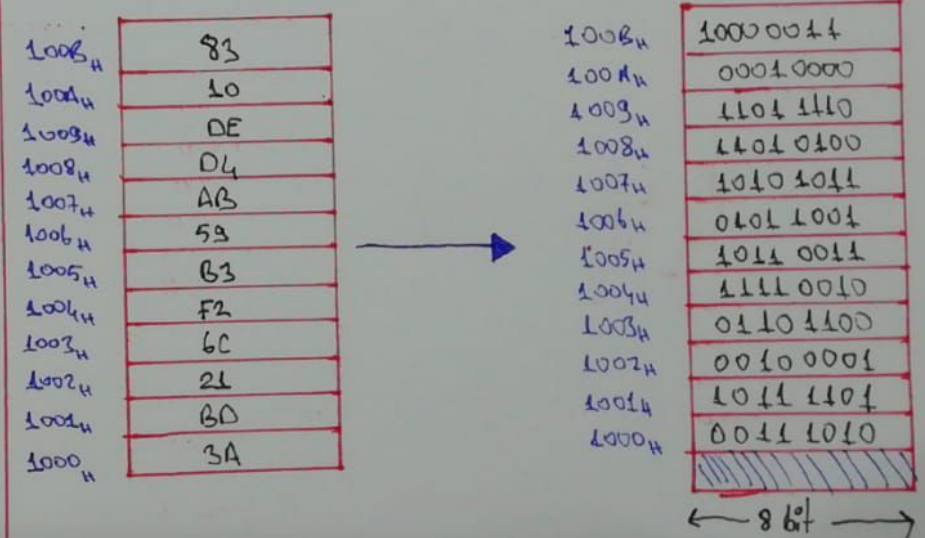 100B H 83
100A H 10
1009 H DE
1008 H D4
1007 H AB
1006 H 59
1005 H B3
1004 H F2
1003 H 6C
1002 H 21
1001 H BD
1000 H 3A
100B H 1000 0011
100A H 0001 0000
1009 H 1101 1110
1008 H 1101 0100
1007 H 1010 1011
1006 H 0101 1001
1005 H 1011 0011
1004 H 1111 0010
1003 H 0110 1100
1002 H 0010 0001
1001 H 1011 1101
1000 H 0011 1010
8 bit